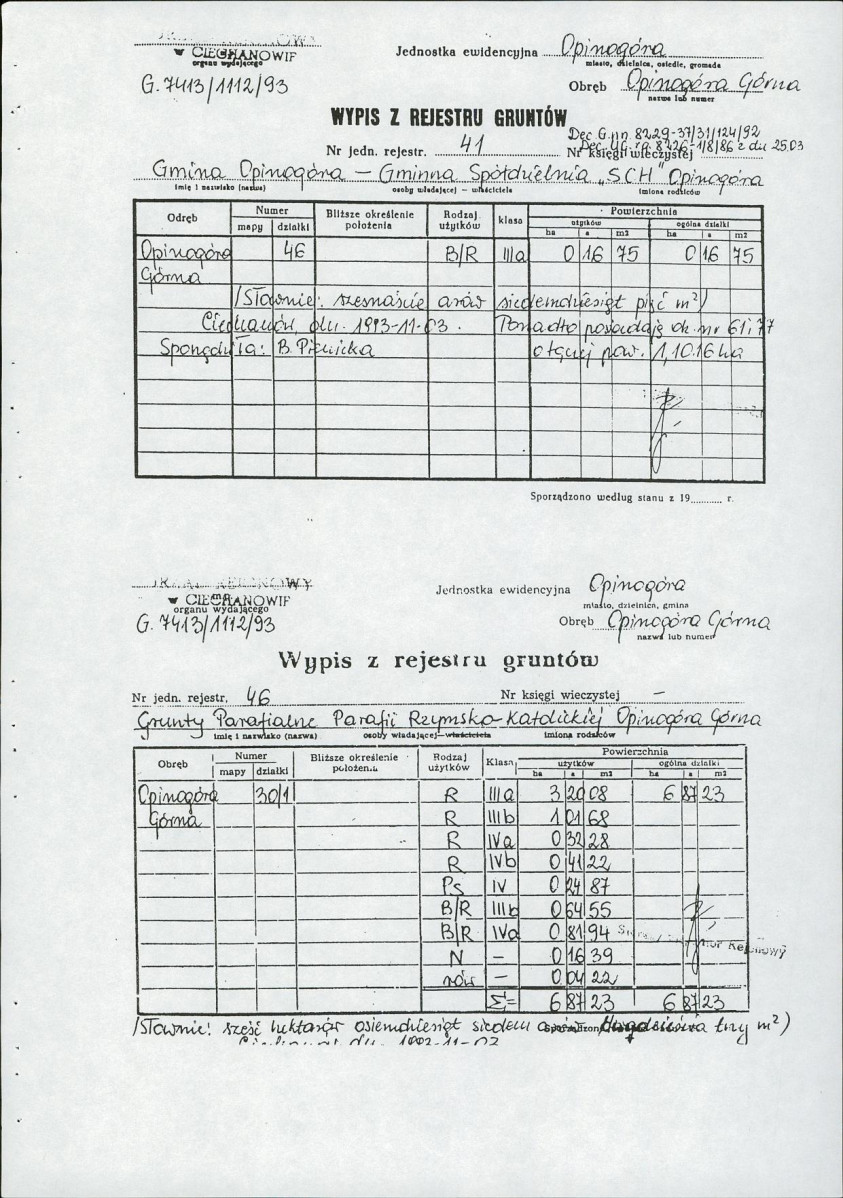 w CIECHANOWIE
organu wydającego
G. 7413/1112/93
Jednostka ewidencyjna Opinogóra
miasto, dzielnica, osiedle, gromada
Obręb Opinogóra Górna
nazwa lub numer
WYPIS Z REJESTRU GRUNTÓW
Dec G.nn 8229-37/31/124/92
Nr jedn. rejestr. 41 Nr księgi wieczystej
Dec. UG. rg. 8226-1/8/86 z dn 25.03
Gmina Opinogóra – Gminna Spółdzielnia „SCH" Opinogóra
imię i nazwisko (nazwa) osoby władającej – właściciela imiona rodziców
Odręb Numer Bliższe określenie położenia Rodzaj użytków klasa Powierzchnia
mapy działki użytków ogólna działki
ha a m2 ha a m2
Opinogóra 46 B/R IIIa 0 16 75 0 16 75
Górna
/Słownie: szesnaście arów siedemdziesiąt pięć m²/
Ciechanów, dn. 1993-11-03. Ponadto posiadają dz. nr 61 i 77
Sporządziła: B. Pienicka o łącznej pow. 1,1016 ha
Sporządzono według stanu z 19 r.
URZĄD REJONOWY
w CIECHANOWIE
organu wydającego
G. 7413/1112/93
Jednostka ewidencyjna Opinogóra
miasto, dzielnica, gmina
Obręb Opinogóra Górna
nazwa lub numer
Wypis z rejestru gruntów
Nr jedn. rejestr, 46 Nr księgi wieczystej –
Grunty Parafialne Parafii Rzymsko-Katolickiej Opinogóra Górna
imię i nazwisko (nazwa) osoby władającej – właściciela imiona rodziców
Obręb Numer Bliższe określenie położenia Rodzaj użytków Klasa Powierzchnia
mapy działki użytków ogólna działki
ha a m2 ha a m2
Opinogóra 30/1 R IIIa 3 20 08 6 87 23
Górna R IIIb 1 01 68
R IVa 0 32 28
R IVb 0 41 22
Ps IV 0 24 87
B/R IIIb 0 64 55
B/R IVa 0 81 94
N – 0 16 39
rów – 0 04 22
Σ= 6 87 23 6 87 23
/Słownie: sześć hektarów osiemdziesiąt siedem arów dwadzieścia trzy m²)